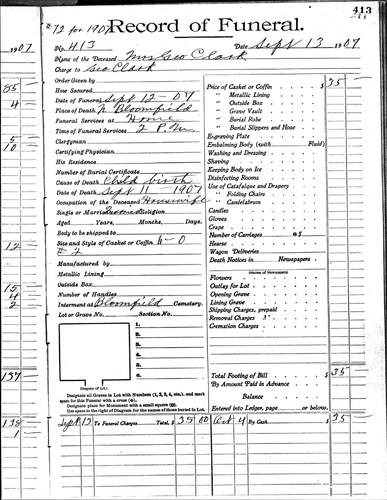 413
# 72 for 1907
Record of Funeral.
1907
No. 413
Date Sept 13 1907
Name of the Deceased Mrs Geo Clark
Charge to Geo Clark
Order Given by
How Secured
Date of Funeral Sept 12-07
Place of Death N. Bloomfield
Funeral Services at Home
Time of Funeral Services 2 P.M.
Clergyman
Certifying Physician
His Residence
Number of Burial Certificate
Cause of Death Child birth
Date of Death Sept 11 1907
Occupation of the Deceased Housewife
Single or Married Religion
Aged Years, Months, Days.
Body to be shipped to
Size and Style of Casket or Coffin 6-0
# 2
Manufactured by
Metallic Lining
Outside Box
Number of Handles
Interment at Bloomfield Cemetery.
Lot or Grave No. Section No.
1.
2.
3.
4.
5.
6.
(Diagram of Lot.)
Designate all Graves in Lot with Numbers (1, 2, 3, 4, etc.), and mark
space for this Funeral with a cross (+).
Designate place for Monument with a small square (□).
Use space to the right of Diagram for the names of those buried in Lot.
Price of Casket or Coffin $ 35
" Metallic Lining
" Outside Box
" Grave Vault
" Burial Robe
" Burial Slippers and Hose
Engraving Plate
Embalming Body (with Fluid)
Washing and Dressing
Shaving
Keeping Body on Ice
Disinfecting Rooms
Use of Catafalque and Drapery
" Folding Chairs
" Candelabrum
Candles
Gloves
Crape
Number of Carriages @ $
Hearse
Wagon Deliveries
Death Notices in Newspapers
(Names of Newspapers)
Flowers
Outlay for Lot
Opening Grave
Lining Grave
Shipping Charges, prepaid
Removal Charges
Cremation Charges
Total Footing of Bill $ 35
By Amount Paid in Advance
Balance
Entered into Ledger, page or below.
Sept 13 To Funeral Charges Total, $ 35 00 Oct 4 By Cash $ 35
85
4
5
10
12
15
4
2
137
138
1